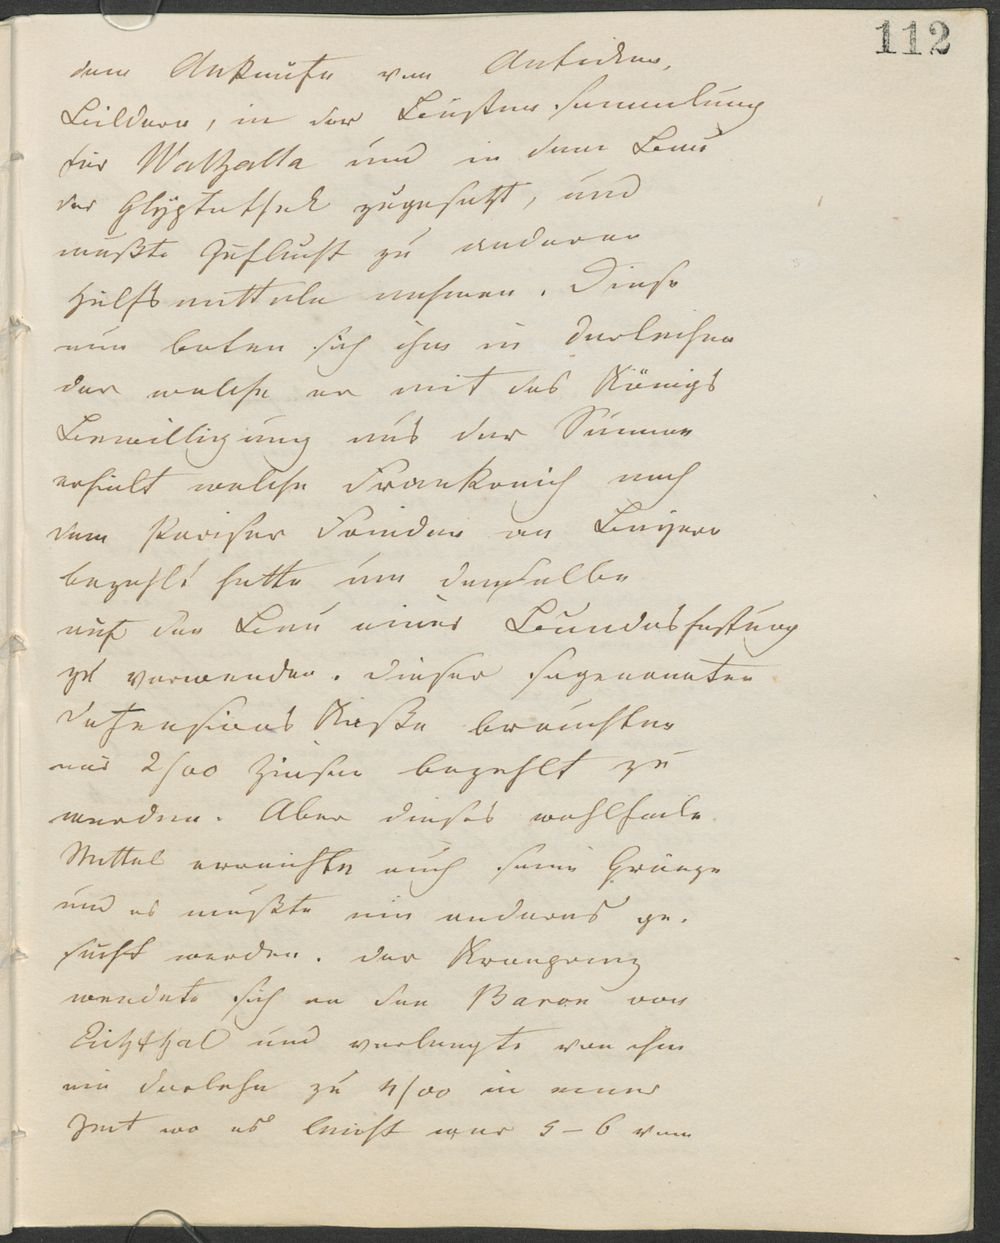 112
dem Ankaufe von Antiken,
Bildern, in der Büsten Sammlung
für Walhalla und in dem Bau
der Glyptothek zugesetzt, und
mußte Zuflucht zu anderen
Hülfsmitteln nehmen. Diese
nun boten sich ihm in Darleihen
dar welche er mit des Königs
Bewilligung aus der Summe
erhielt welche Frankreich nach
dem Pariser Frieden an Bayern
bezahlt hatte um dieselbe
auf den Bau einer Bundesfestung
zu verwenden. Dieser sogenannten
Defensions Kasse brauchten
nur 2/00 Zinsen bezahlt zu
werden. Aber dieses wohlfeile
Mittel erreichte auch seine Gränze
und es mußte ein anderes ge-
sucht werden. Der Kronprinz
wendete sich an den Baron von
Eichthal und verlangte von ihm
ein Darlehn zu 4/00 in einer
Zeit wo es leicht war 5-6 vom